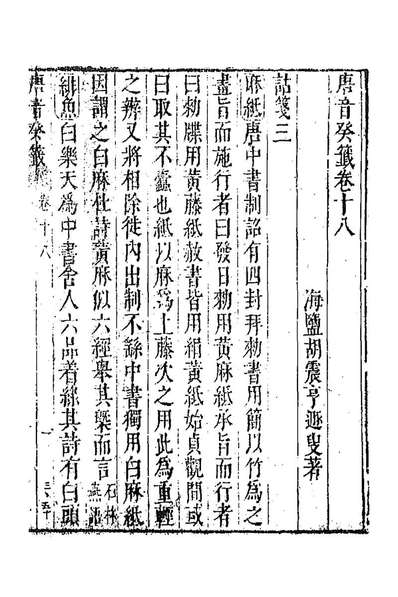 唐音癸籤卷十八
海鹽胡震亨遯叟著
詁箋三
麻紙唐中書制詔有四封拜勅書用簡以竹爲之
畫旨而施行者曰發日勅用黃麻紙承旨而行者
曰勅牒用黃藤紙赦書皆用絹黃紙始貞觀間或
曰取其不蠧也紙以麻爲上藤次之用此爲重輕
之辨又將相除徙內出制不繇中書獨用白麻紙
因謂之白麻杜詩黃麻似六經舉其槩而言石林燕語
緋魚白樂天爲中書舍人六品着綠其詩有白頭
唐音癸籤 卷十八 一